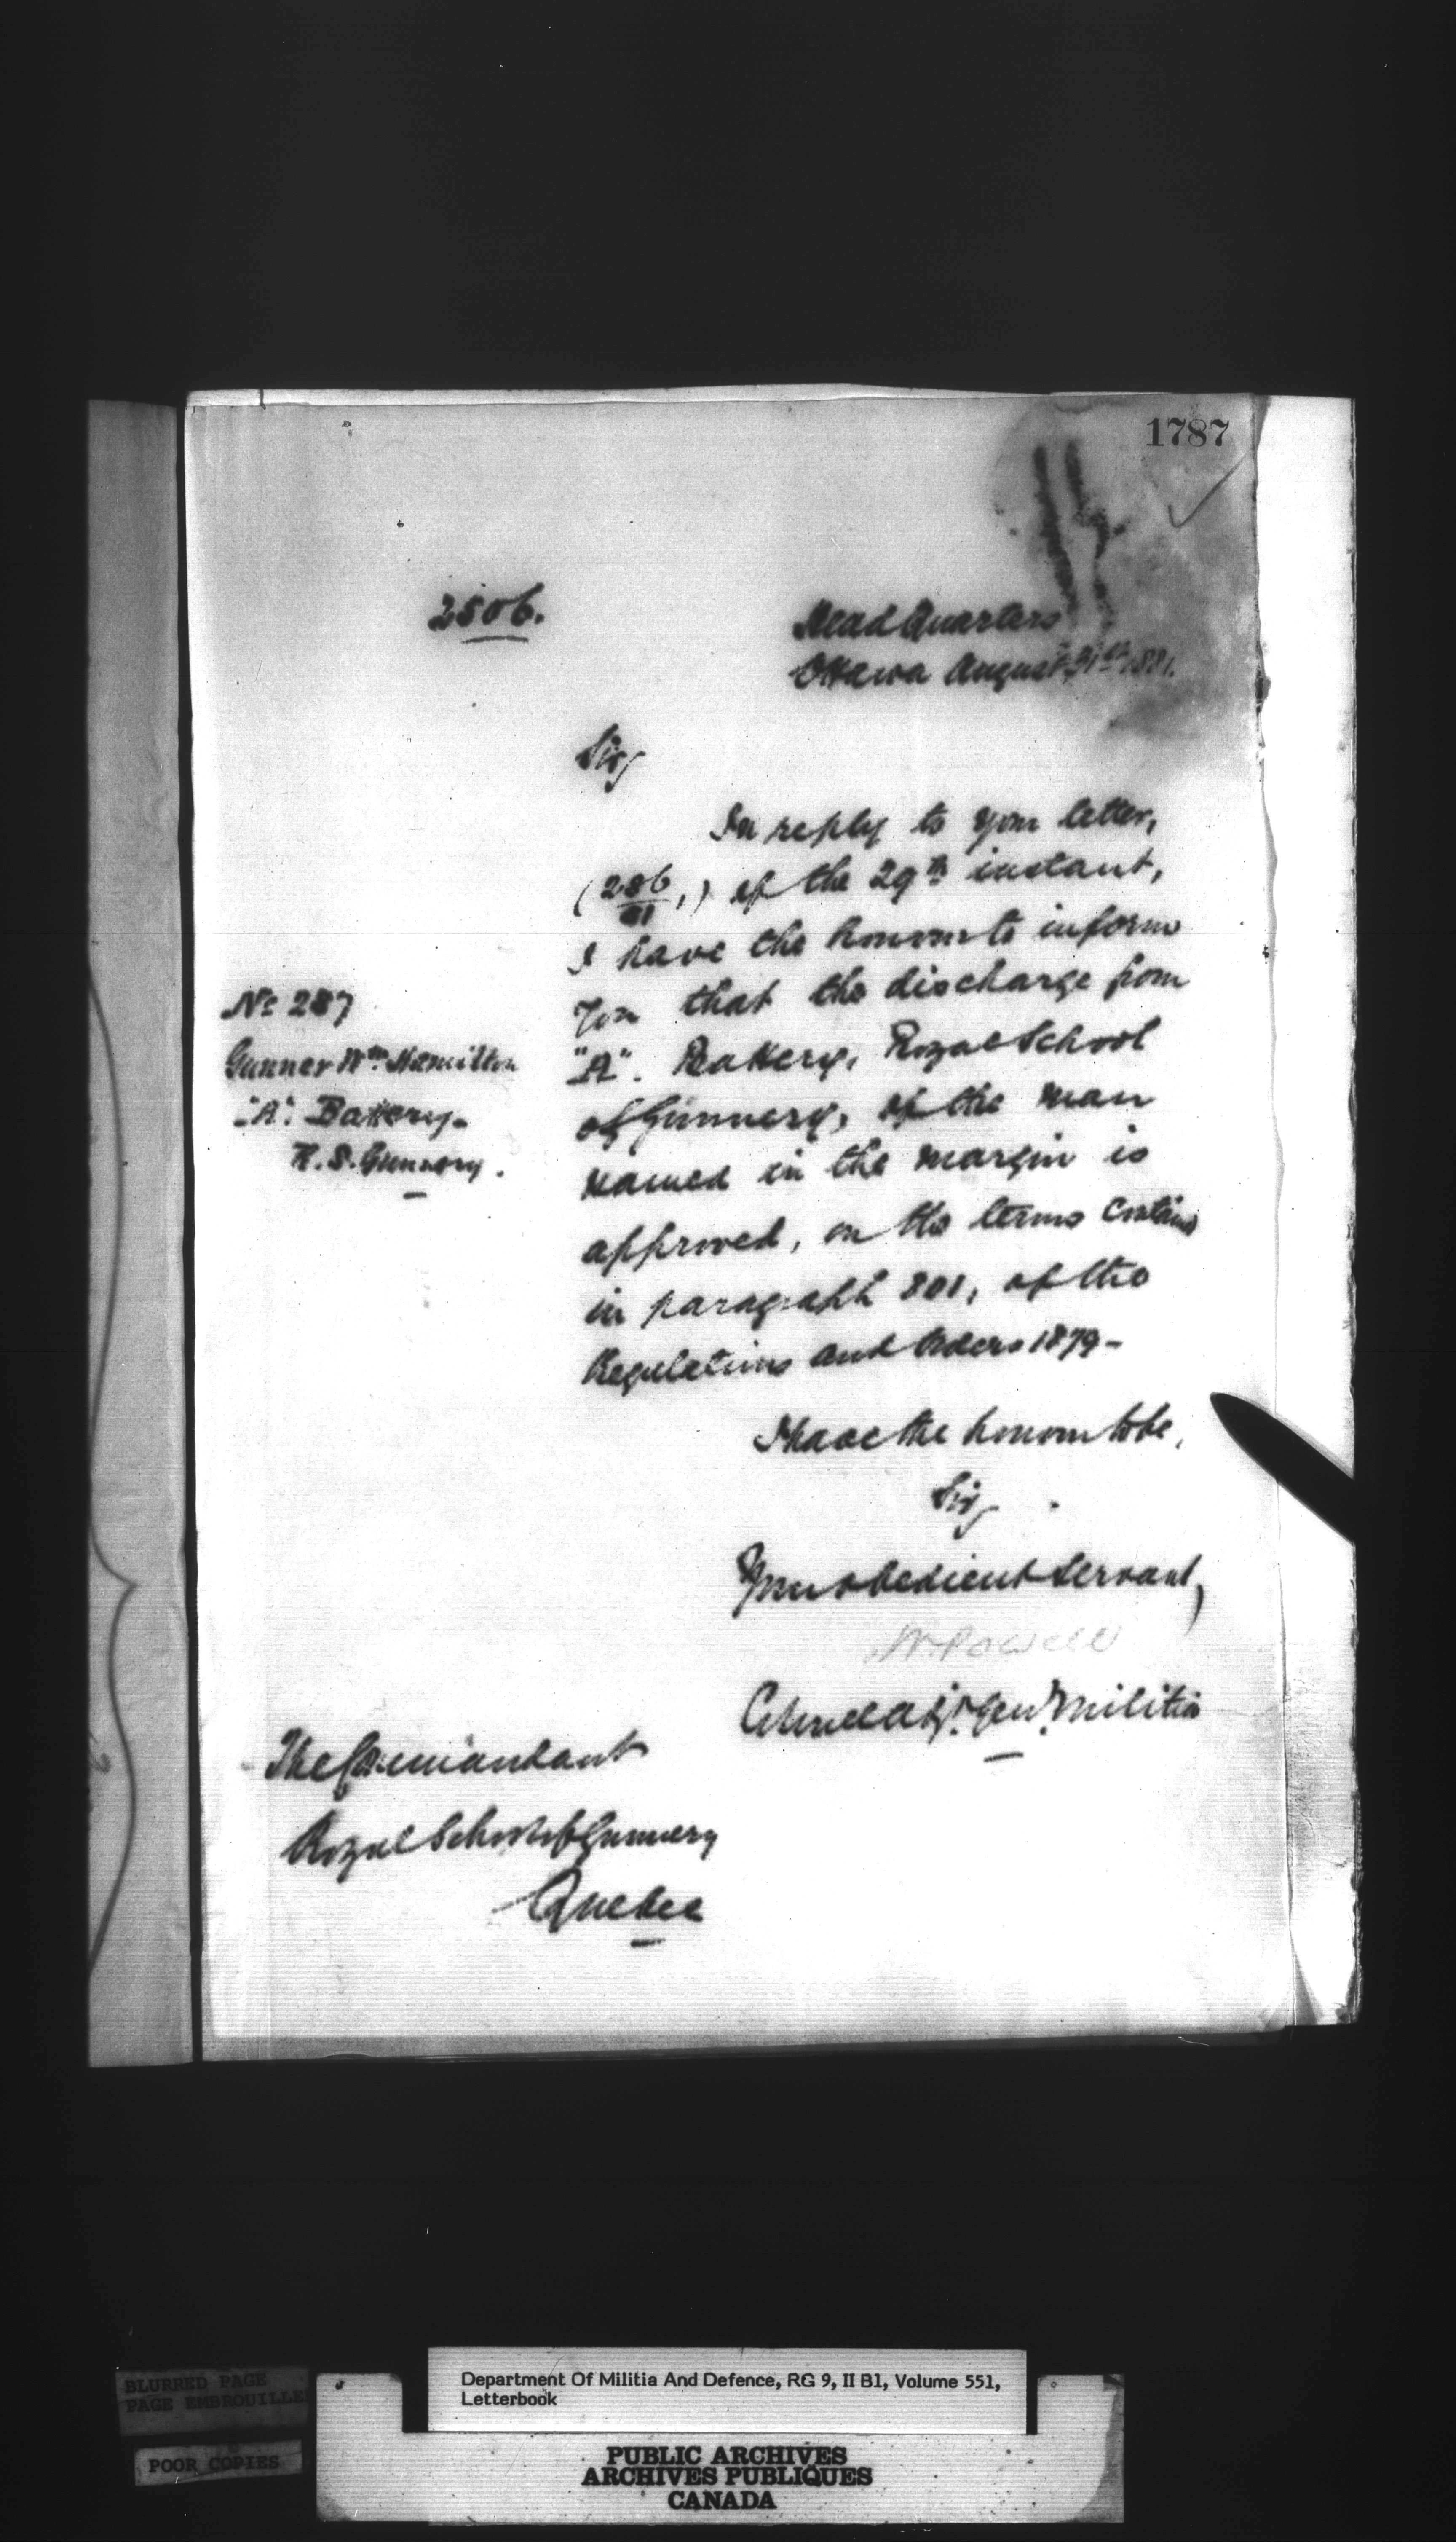 1787
2506.
Head Quarters
Ottawa August 31st 1881.
Sir,
In reply to your letter,
(286/81,) of the 29th instant,
I have the honour to inform
you that the discharge from
"A". Battery, Royal School
of Gunnery, of the man
named in the margin is
approved, on the terms contained
in paragraph 801, of the
Regulations and Orders 1879-
No 287
Gunner Wm. Hamilton
"A". Battery-
R. S. Gunnery.
I have the honour to be,
Sir,
Your obedient Servant,
W. Powell
Colonel Adjt. Genl. Militia
The Commandant
Royal School of Gunnery
Quebec
BLURRED PAGE
PAGE EMBROUILLE
POOR COPIES
Department Of Militia And Defence, RG 9, II B1, Volume 551,
Letterbook
PUBLIC ARCHIVES
ARCHIVES PUBLIQUES
CANADA